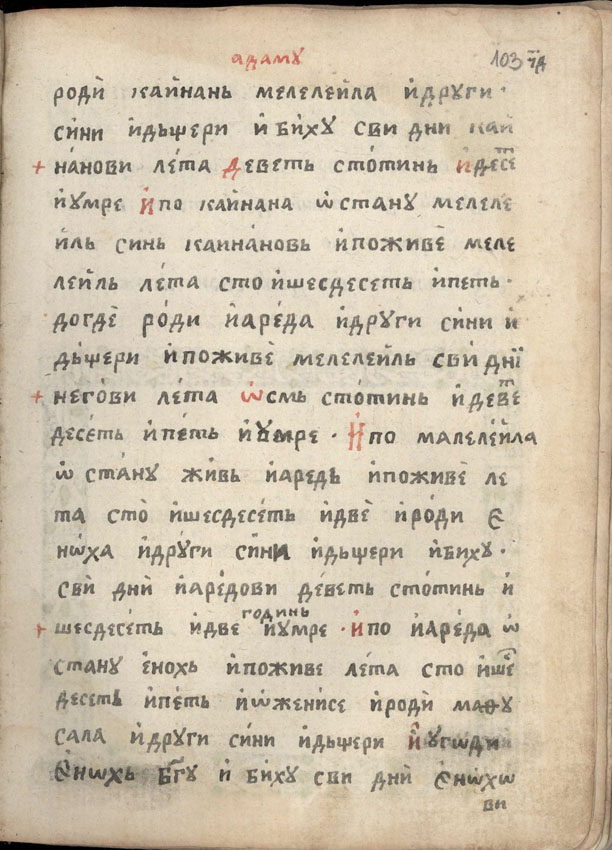 адаму 103 чд
роди̇̀ каи̇нань мелелеи̇ла и҆други ·
си́ни и҆дьщери и҆ би́ху сви дни каи
+ на́нови ле́та деветь сто́тинь и҆десеⷮ
и҆умре и҆по каи̇нана ѡ҆стану мелеле
и҆ль синь каина́новь и҆поживѐ меле
леи̇ль ле́та сто и҆шесдесеть и҆петь ·
догдѐ ро́ди и҆аре́да и҆други си́ни и҆
дьщери и҆поживѐ мелелеи̇ль сви дни̇
+ него́ви лета ѡ҆смь сто́тинь и҆девеⷮ
десе́ть и҆петь и҆умре · и҆по малелеи̇ла
ѡ҆ ста́ну живь и҆аредь и҆поживѐ ле
та сто̀ и҆шесдесе́ть и҆двѐ и҆ро́ди є
нѡ́ха и҆дру́ги си́ни и҆дьщери и҆биху ·
сви̇̀ дни̇̀ и҆аре́дови де́веть сто́тинь и҆
+ шесдесе́ть и҆две годинь и҆умре · и҆по и҆аре́да ѡ҆
стану є҆нохь и҆поживе ле́та сто и҆шеⷭ
десеть и҆петь и҆ѡ҆женисе и҆роди маѳу
сала и҆други си́ни и҆дьщери и҆ угѡди
є҆нѡхь бг҃у и҆ би́ху сви дни̇̀ є҆нѡ́хѡ
ви